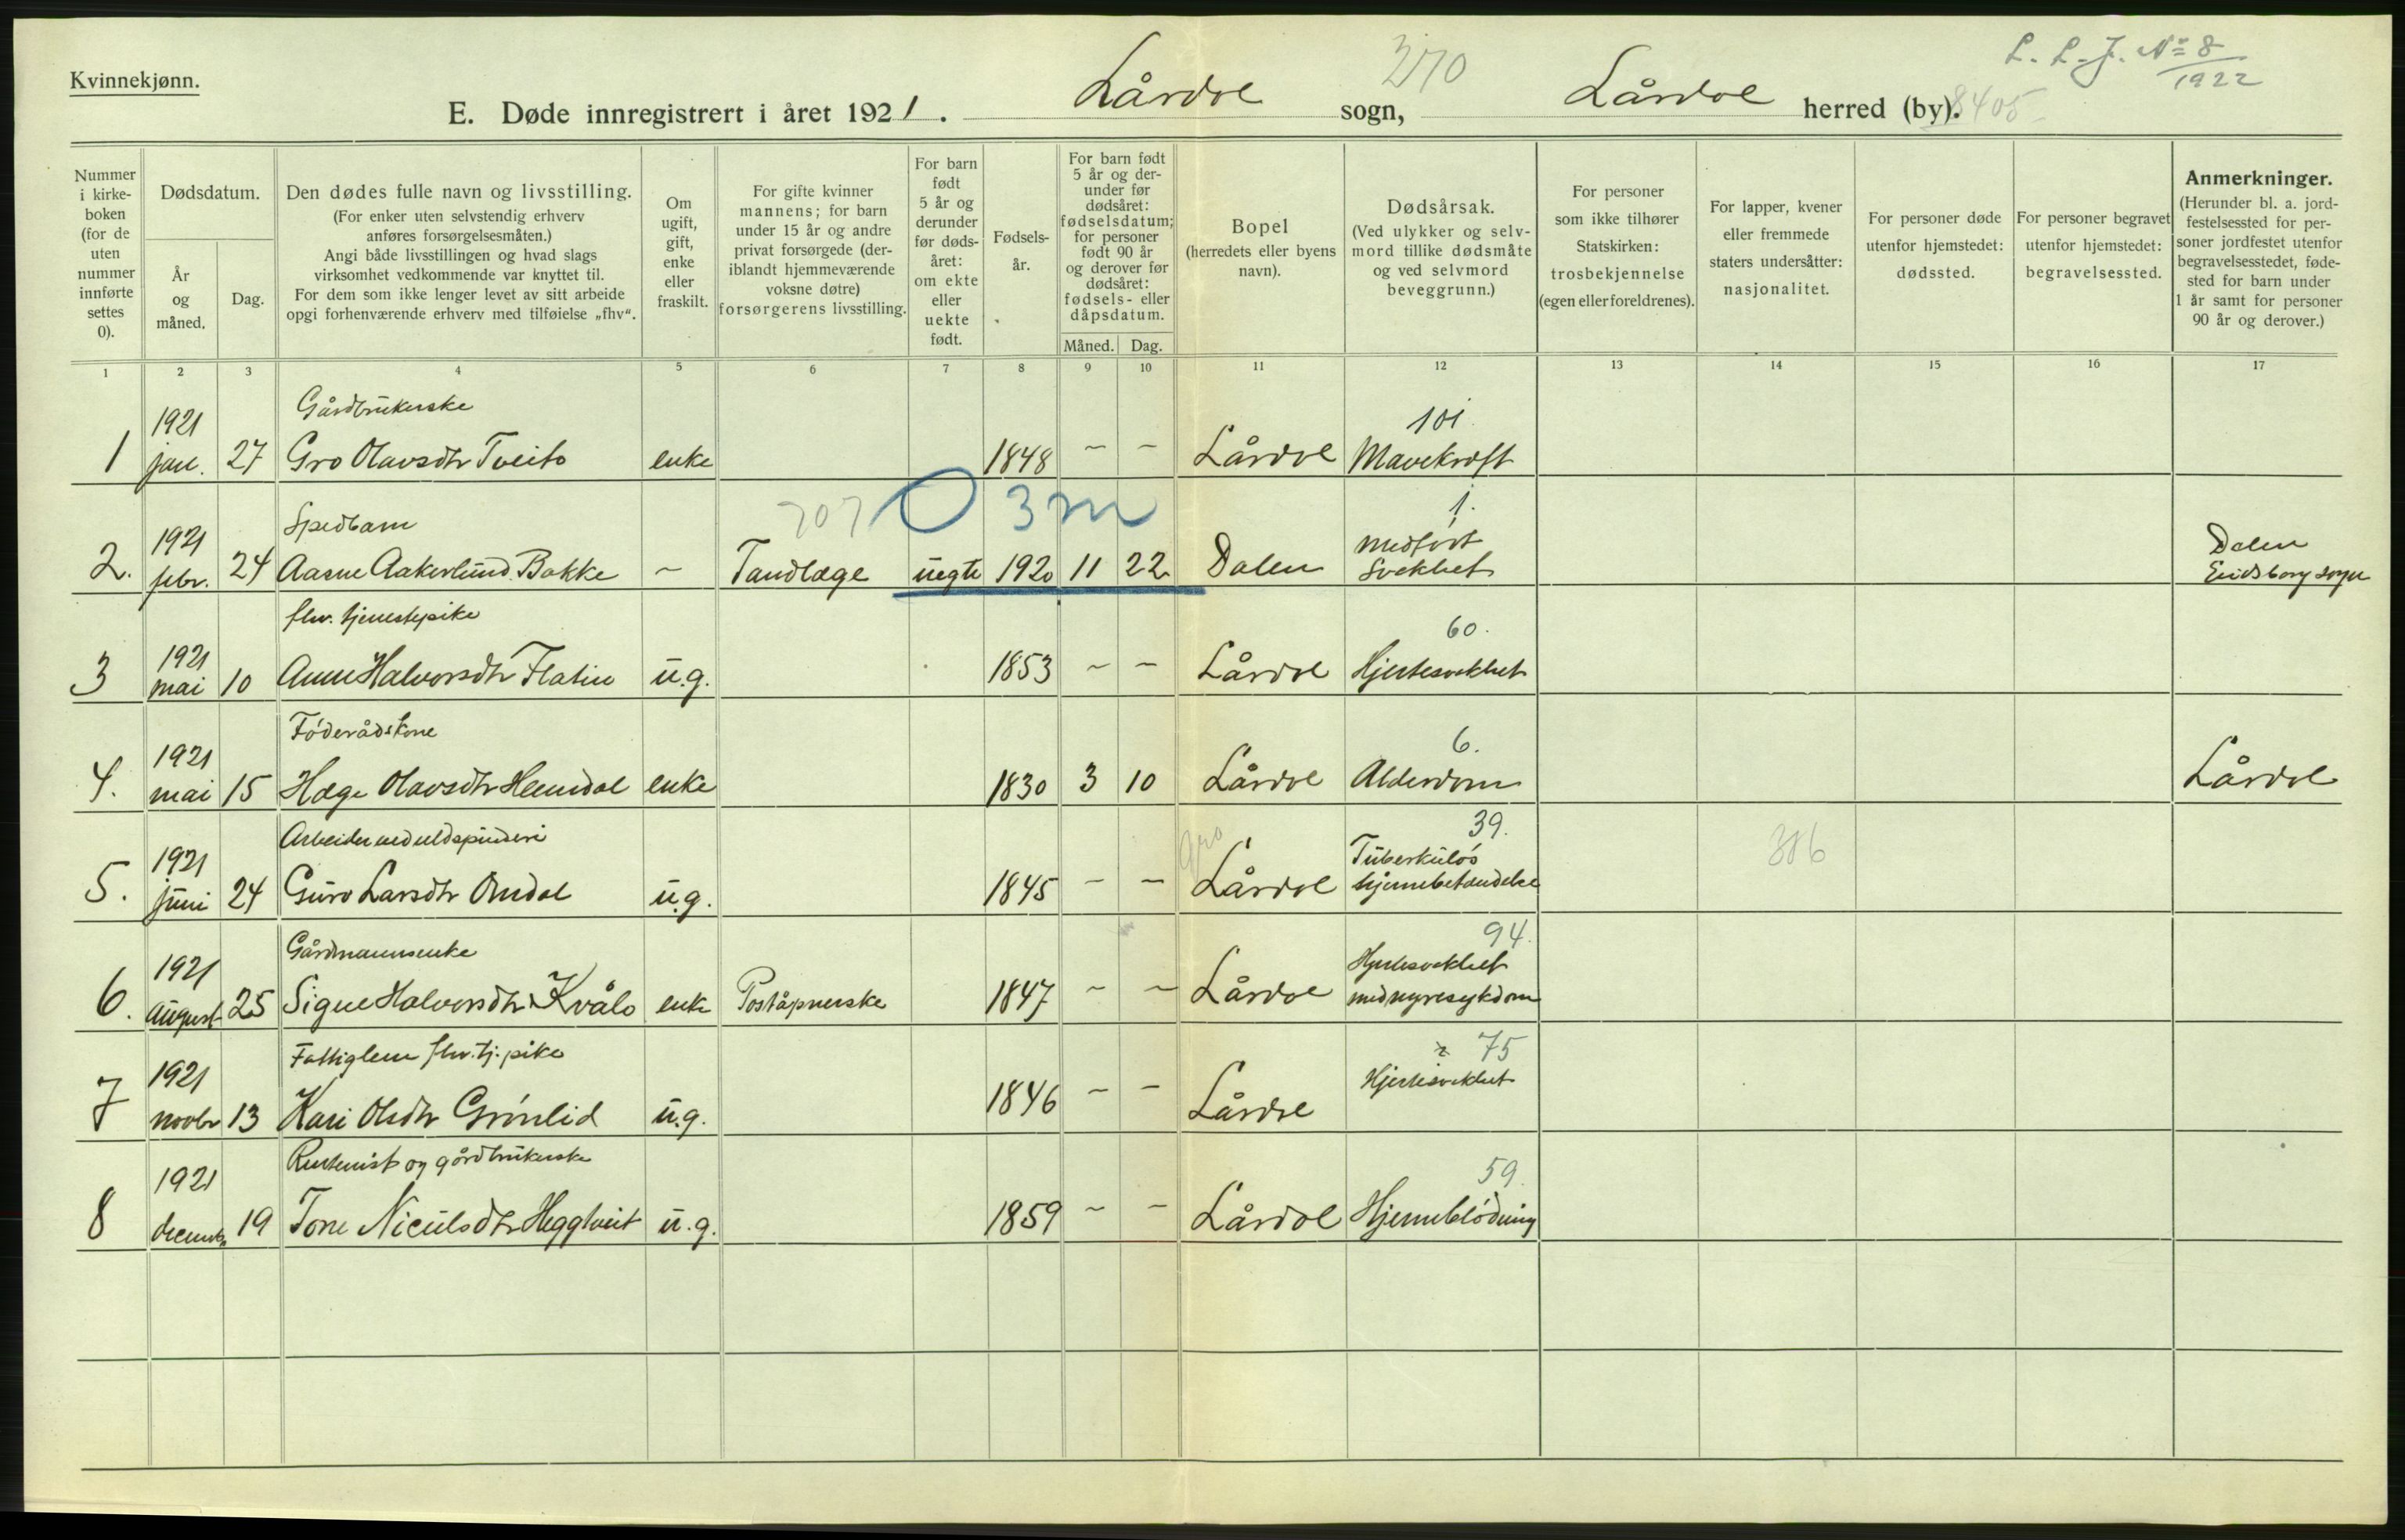 Kvinnekjønn.
E. Døde innregistrert i året 1921. Lårdal sogn, Lårdal herred (by).
270
L. L. J. No 8
1922
8405
Nummer i kirke-boken (for de uten nummer innførte settes 0).
Dødsdatum.
År og måned.
Dag.
Den dødes fulle navn og livsstilling.
(For enker uten selvstendig erhverv
anføres forsørgelsesmåten.)
Angi både livsstillingen og hvad slags
virksomhet vedkommende var knyttet til.
For dem som ikke lenger levet av sitt arbeide
opgi forhenværende erhverv med tilføielse „fhv“.
Om ugift, gift, enke eller fraskilt.
For gifte kvinner
mannens; for barn
under 15 år og andre
privat forsørgede (der-
iblandt hjemmeværende
voksne døtre)
forsørgerens livsstilling.
For barn født 5 år og derunder før døds-året: om ekte eller uekte født.
Fødsels-år.
For barn født
5 år og der-
under før
dødsåret:
fødselsdatum;
for personer
født 90 år
og derover før
dødsåret:
fødsels- eller
dåpsdatum.
Måned. Dag.
Bopel
(herredets eller byens
navn).
Dødsårsak.
(Ved ulykker og selv-
mord tillike dødsmåte
og ved selvmord
beveggrunn.)
For personer
som ikke tilhører
Statskirken:
trosbekjennelse
(egen eller foreldrenes).
For lapper, kvener
eller fremmede
staters undersåtter:
nasjonalitet.
For personer døde
utenfor hjemstedet:
dødssted.
For personer begravet
utenfor hjemstedet:
begravelsessted.
Anmerkninger.
(Herunder bl. a. jord-
festelsessted for per-
soner jordfestet utenfor
begravelsesstedet, føde-
sted for barn under
1 år samt for personer
90 år og derover.)
1 2 3 4 5 6 7 8 9 10 11 12 13 14 15 16 17
1921 Gårdbrukerske 101
1 jan. 27 Gro Olavsdtr Tveito enke 1848 – – Lårdal Mavekræft
707 0 3 m
1921 Spedbarn 1. medfört Dalen
2. febr. 24 Aasne Aakerlund Bakke – Tandlæge uegte 1920 11 22 Dalen svakhet Eidsborg sogn
1921 fhv. tjenestepike 60.
3 mai 10 Anne Halvorsdtr Flatin u.g. 1853 – – Lårdal Hjertesvakhet
1921 Föderådskone 6.
4. mai 15 Hæge Olavsdtr Heimdal enke 1830 3 10 Lårdal Alderdom Lårdal
1921 Arbeider ved uldspinderi 39. Tuberkuløs 386
5. juni 24 Guro Larsdtr Omdal u.g. 1845 – – Lårdal hjernebetændelse
1921 Gårdmannsenke 94. Hjertesvakhet
6. august 25 Signe Halvorsdtr Kvålo enke Poståpnerske 1847 – – Lårdal med nyresykdom
1921 Fattiglem fhv. tj. pike 75
7 novbr 13 Kari Olsdtr Grönlid u.g. 1846 – – Lårdal Hjertesvakhet
1921 Rentenist og gårdbrukerske 59.
8 decembr 19 Tone Niculsdtr Heggtveit u.g. 1859 – – Lårdal Hjerneblödning